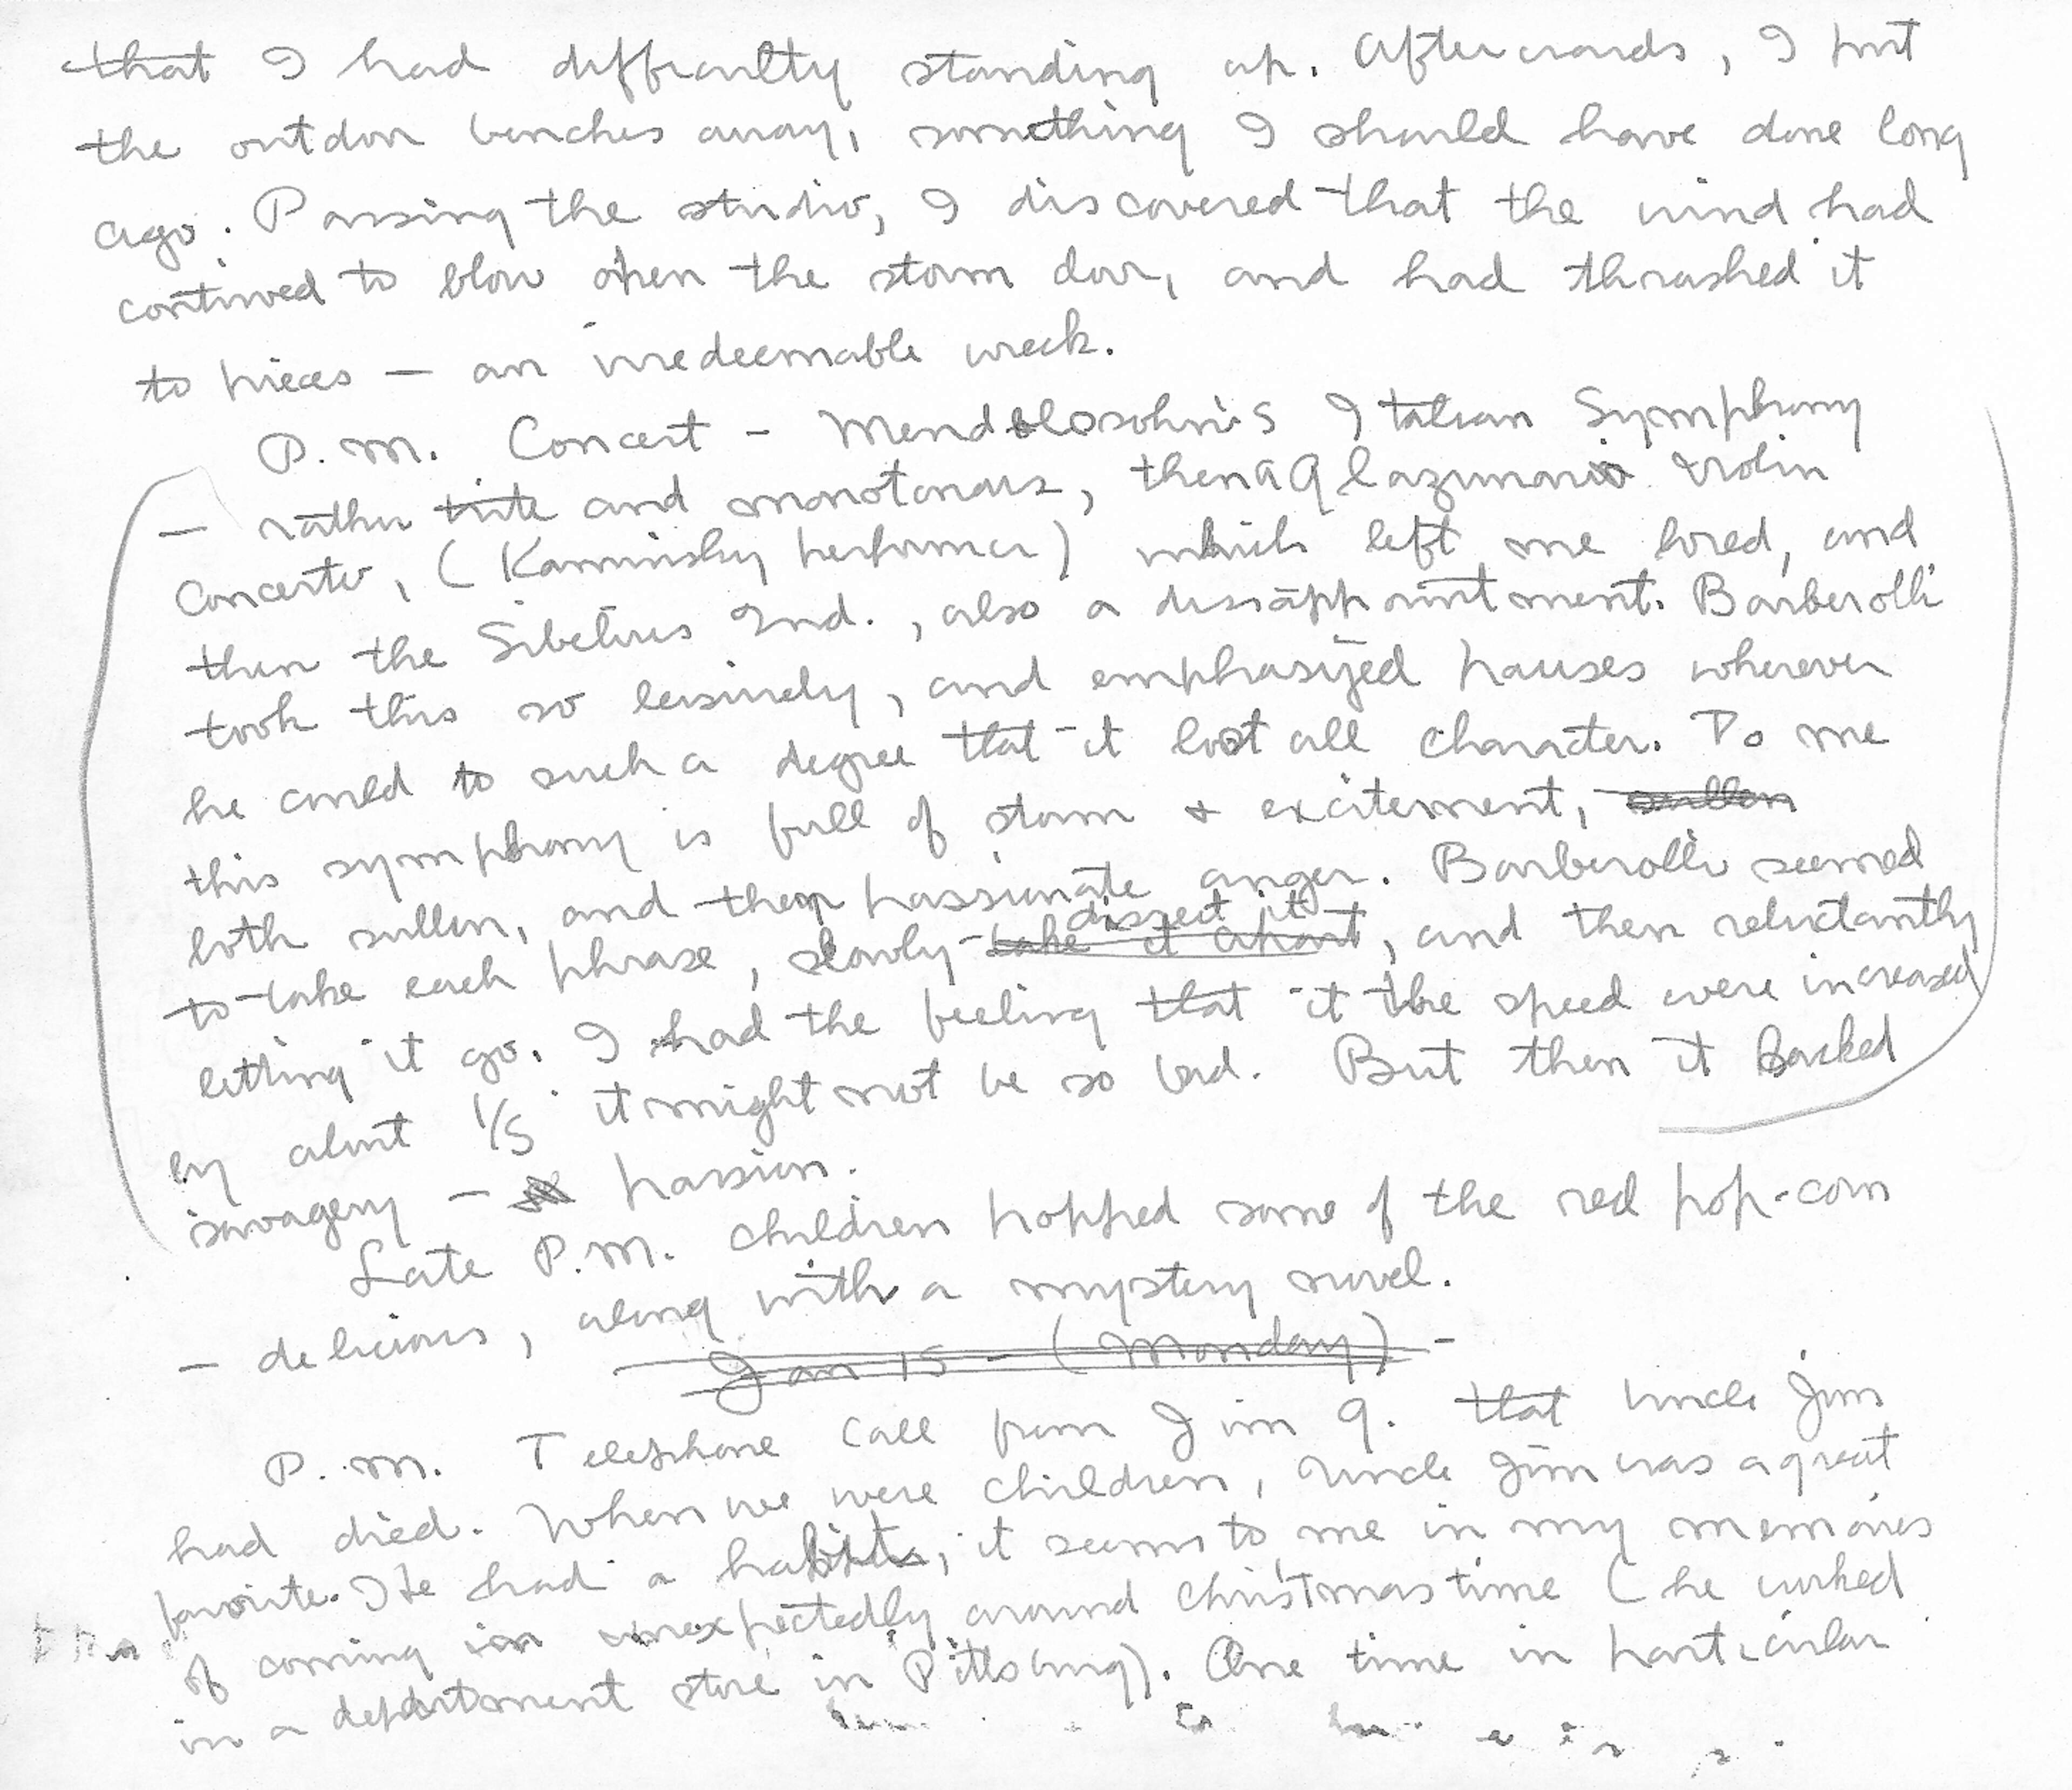 that I had diffficulty standing up. Afterwards, I put
the outdoor benches away, something I should have done long
ago. Passing the studio, I discovered that the wind had
continued to blow open the storm door, and had thrashed it
to pieces — an irredeemable wreck.
P.M. Concert - Mendelssohn's Italian Symphony
— rather trite and monotonous, then a Glazunov violin
concerto, (Kaminsky performer) which left me bored, and
then the Sibelius 2nd., also a dissappointment. Barberolli
took this so leisurely, and emphasized pauses wherever
he could to such a degree that it lost all character. To me
this symphony is full of storm & excitement, sullen
both sullen, and then passionate anger. Barberolli seemed
to take each phrase, slowly take it apart dissect it, and then reluctantly
letting it go. I had the feeling that if the speed were increased
by about 1/5 it might not be so bad. But then it lacked
savagery — passion.
Late P.M. children popped some of the red pop-corn
— delicious, along with a mystery novel.
Jan 15 - (Monday) -
P.M. Telephone call from Jim G. that Uncle Jim
had died. When we were children, Uncle Jim was a great
favorite. He had a habit, it seems to me in my memories
of coming in unexpectedly around Christmas time (he worked
in a department store in Pittsburg). One time in particular